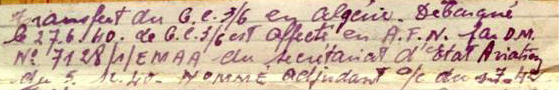 Transfert du G.C.3/6 en Algérie. Débarqué
le 27.6.40. Le G.C.3/6 est affecté en A.F.N. par D.M.
No 7128/1/EMAA du secrétariat d'Etat Aviation
du 5. 12.40. NOMMÉ adjudant a/c du